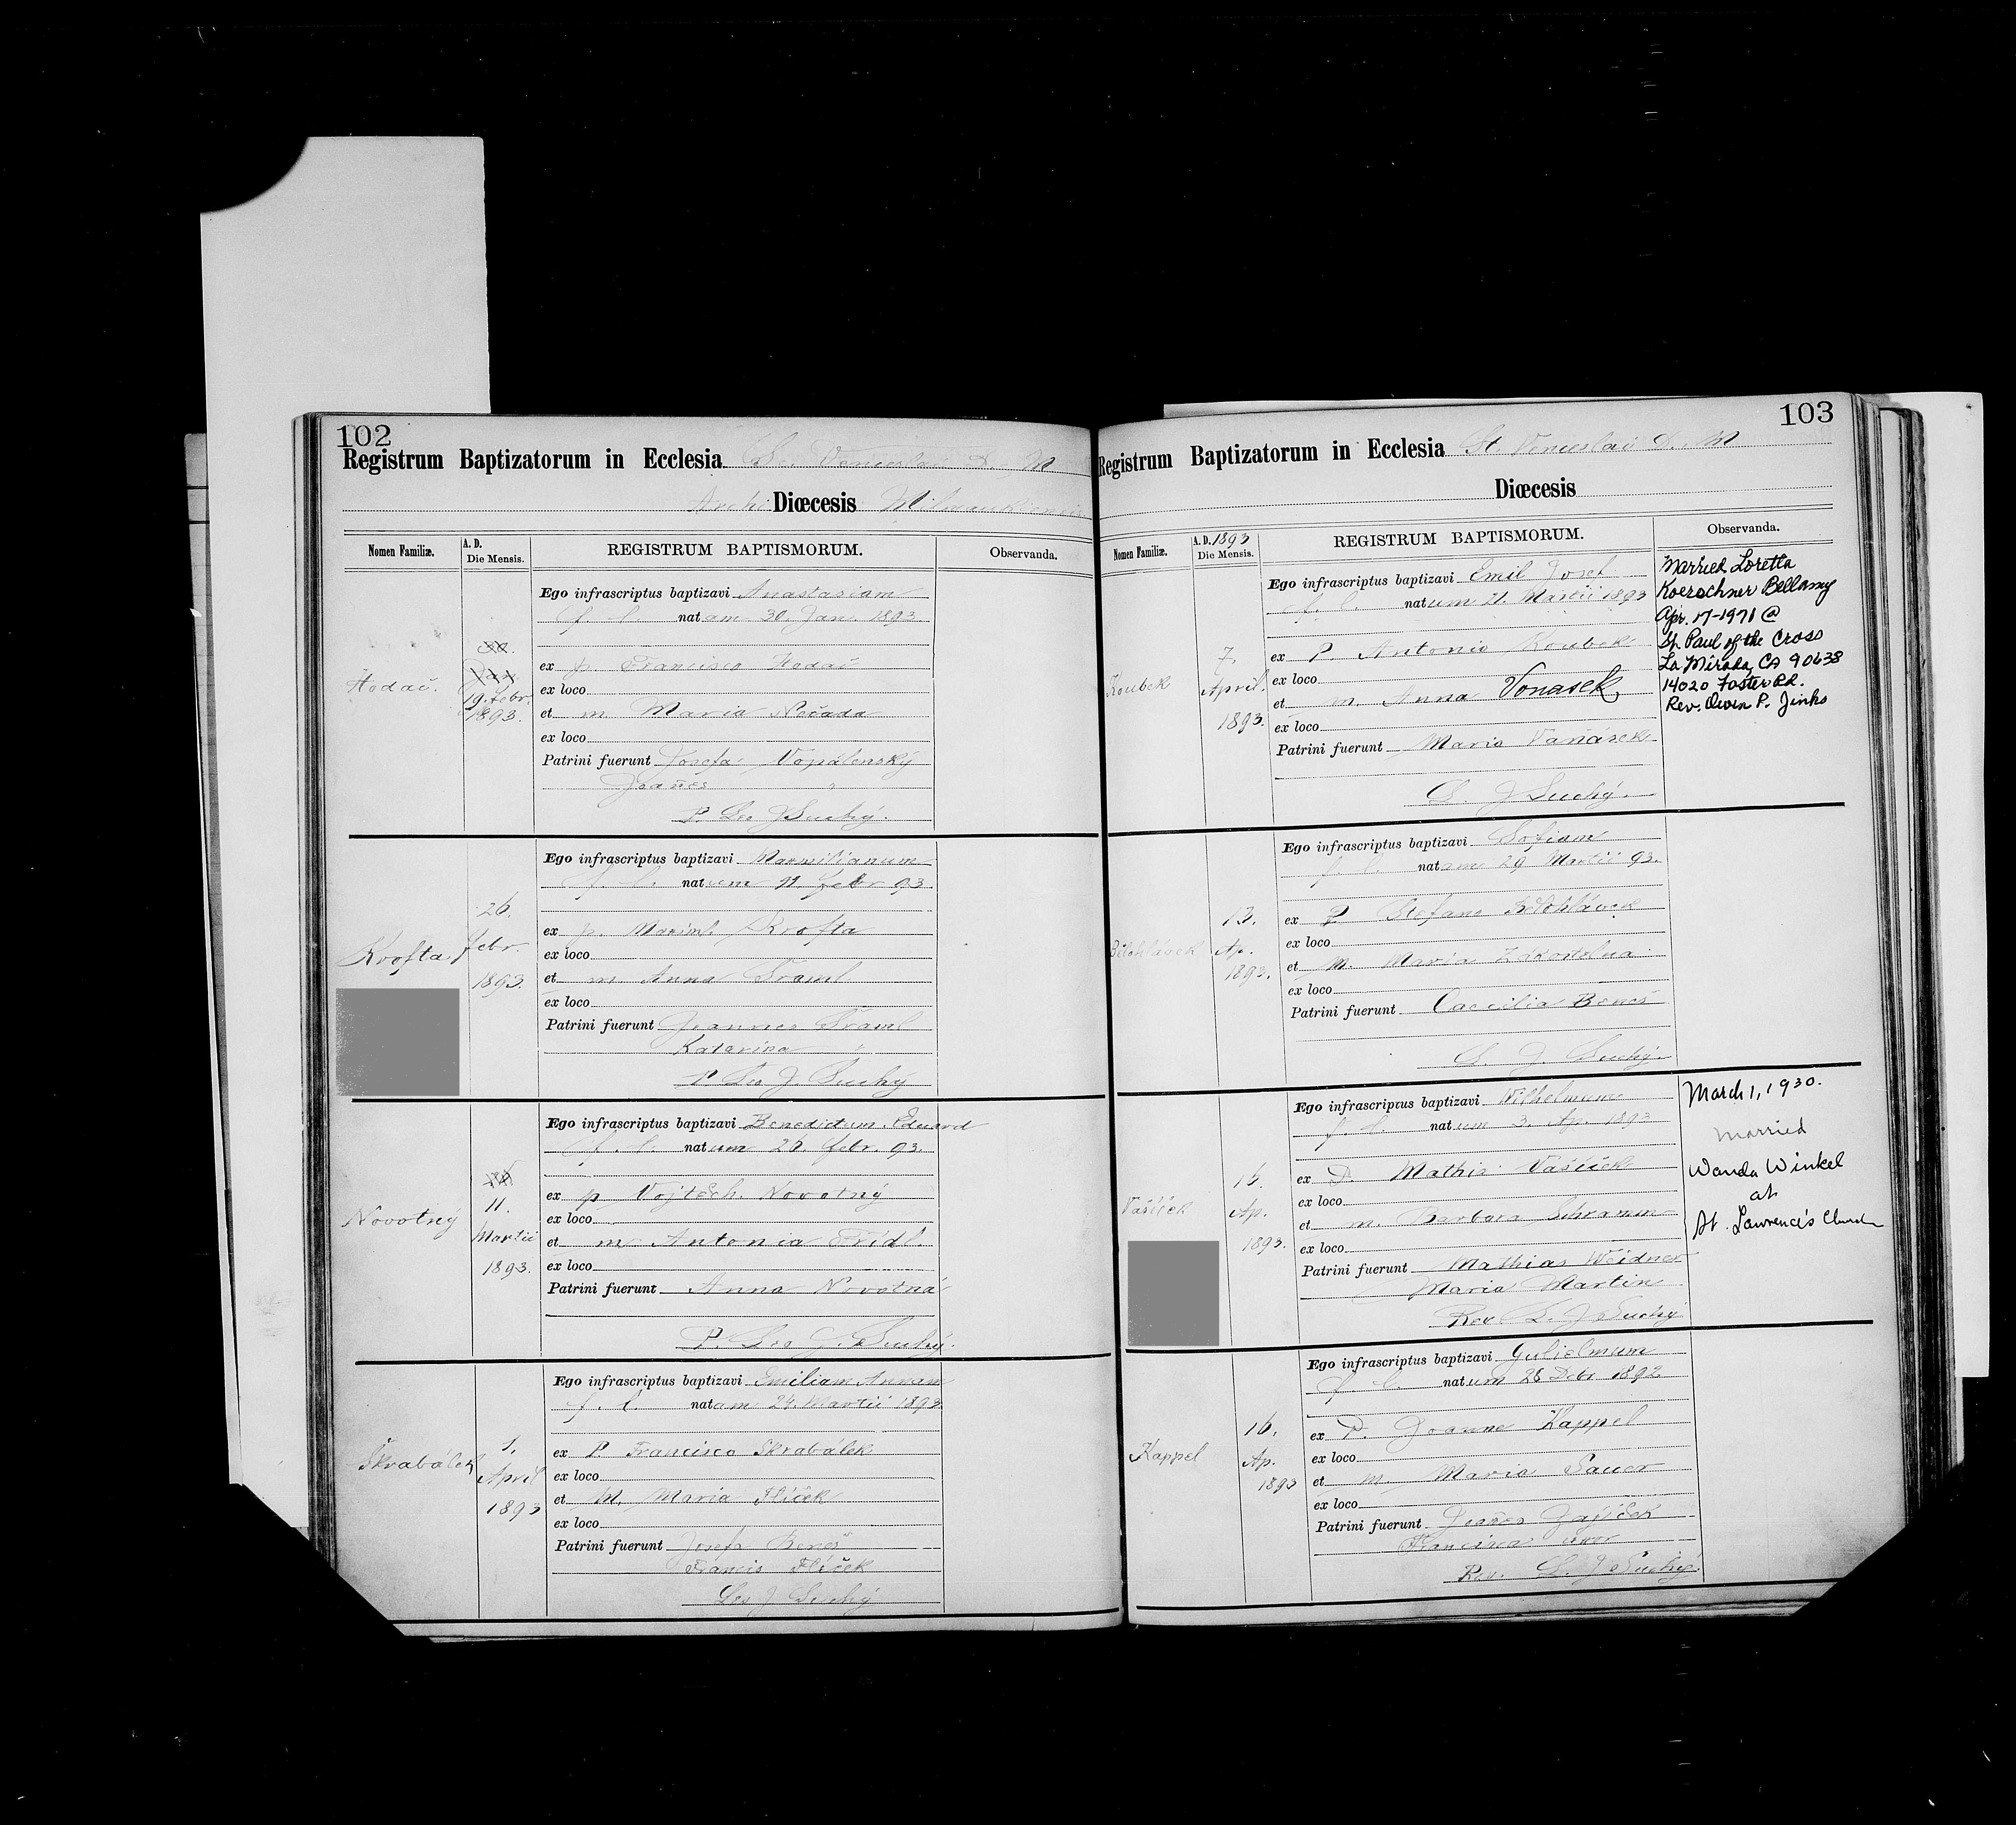 102
Registrum Baptizatorum in Ecclesia St. Venceslai D. M
Archi Diœcesis Milwaukiensis
Nomen Familiæ.
A. D.
Die Mensis.
REGISTRUM BAPTISMORUM.
Observanda.
Hodač.
30.
Jan
19. febr.
1893.
Ego infrascriptus baptizavi Anastasiam
f. l. natam 30. Jan. 1893
ex p. Francisco Hodač
ex loco
et m. Maria Nečada
ex loco
Patrini fuerunt Josefa Vopálenský
Joañes
P. Leo J Suchý.
Krofta
26.
febr.
1893.
Ego infrascriptus baptizavi Maxmilianum
f. l. natum 11. febr 93.
ex p. Maximil Krofta
ex loco
et m. Anna Šraml
ex loco
Patrini fuerunt Joannes Šraml
Katarina
P. Leo J Suchý
Novotný
11.
Martii
1893.
Ego infrascriptus baptizavi Benedictum. Eduard
f. l. natum 20. febr. 93.
ex p Vojtěch. Novotný
ex loco
et m Antonia Fridl.
ex loco
Patrini fuerunt Anna Novotná
P. Leo J. Suchý.
Škrabálek
1.
April
1893
Ego infrascriptus baptizavi Emiliam Annam
f. l. natam 24. Martii 1893.
ex P Francisco Skrabálek
ex loco
et M. Maria Flíček
ex loco
Patrini fuerunt Josefa Beneš
Francis Flíček
Leo J Suchý
103
Registrum Baptizatorum in Ecclesia St. Venceslai D. M
Diœcesis
Nomen Familiæ.
A. D. 1893
Die Mensis.
REGISTRUM BAPTISMORUM.
Observanda.
Koubek
7.
April.
1893.
Ego infrascriptus baptizavi Emil Josef
f. l. natum 21. Martii 1893
ex P. Antonio Koubek
ex loco
et m. Anna Vonasek
ex loco
Patrini fuerunt Maria Vaňásek
L. J Suchý.
Married Loretta
Koerschner Bellamy
Apr. 17-1971 @
St. Paul of the Cross
La Mirada, CA 90638
14020 Foster Rd.
Rev. Owen P. Jinks
Bělohlávek
13.
Ap.
1893.
Ego infrascriptus baptizavi Sofiam
f. l. natam 29 Martii 93.
ex P Stefano Bělohlávek
ex loco
et M. Maria Zákostelna
ex loco
Patrini fuerunt Caecilia Beneš
L. J. Suchý.
Vašíček
16.
Ap.
1893.
Ego infrascriptus baptizavi Wilhelmum
f. l. natum 3. Ap. 1893
ex P. Mathia Vašíček
ex loco
et m. Barbara Schramm
ex loco
Patrini fuerunt Mathias Weidner
Maria Martin
Rev L. J Suchý
March 1, 1930.
Married
Wanda Winkel
at
St. Lawrence's Church
Kappel
16.
Ap.
1893
Ego infrascriptus baptizavi Gulielmum
f. l. natum 26 Debr 1892
ex P. Joanne Kappel
ex loco
et m. Maria Sauer
ex loco
Patrini fuerunt Joañes Zajíček
Francisca uxor
Rev. L. J Suchý